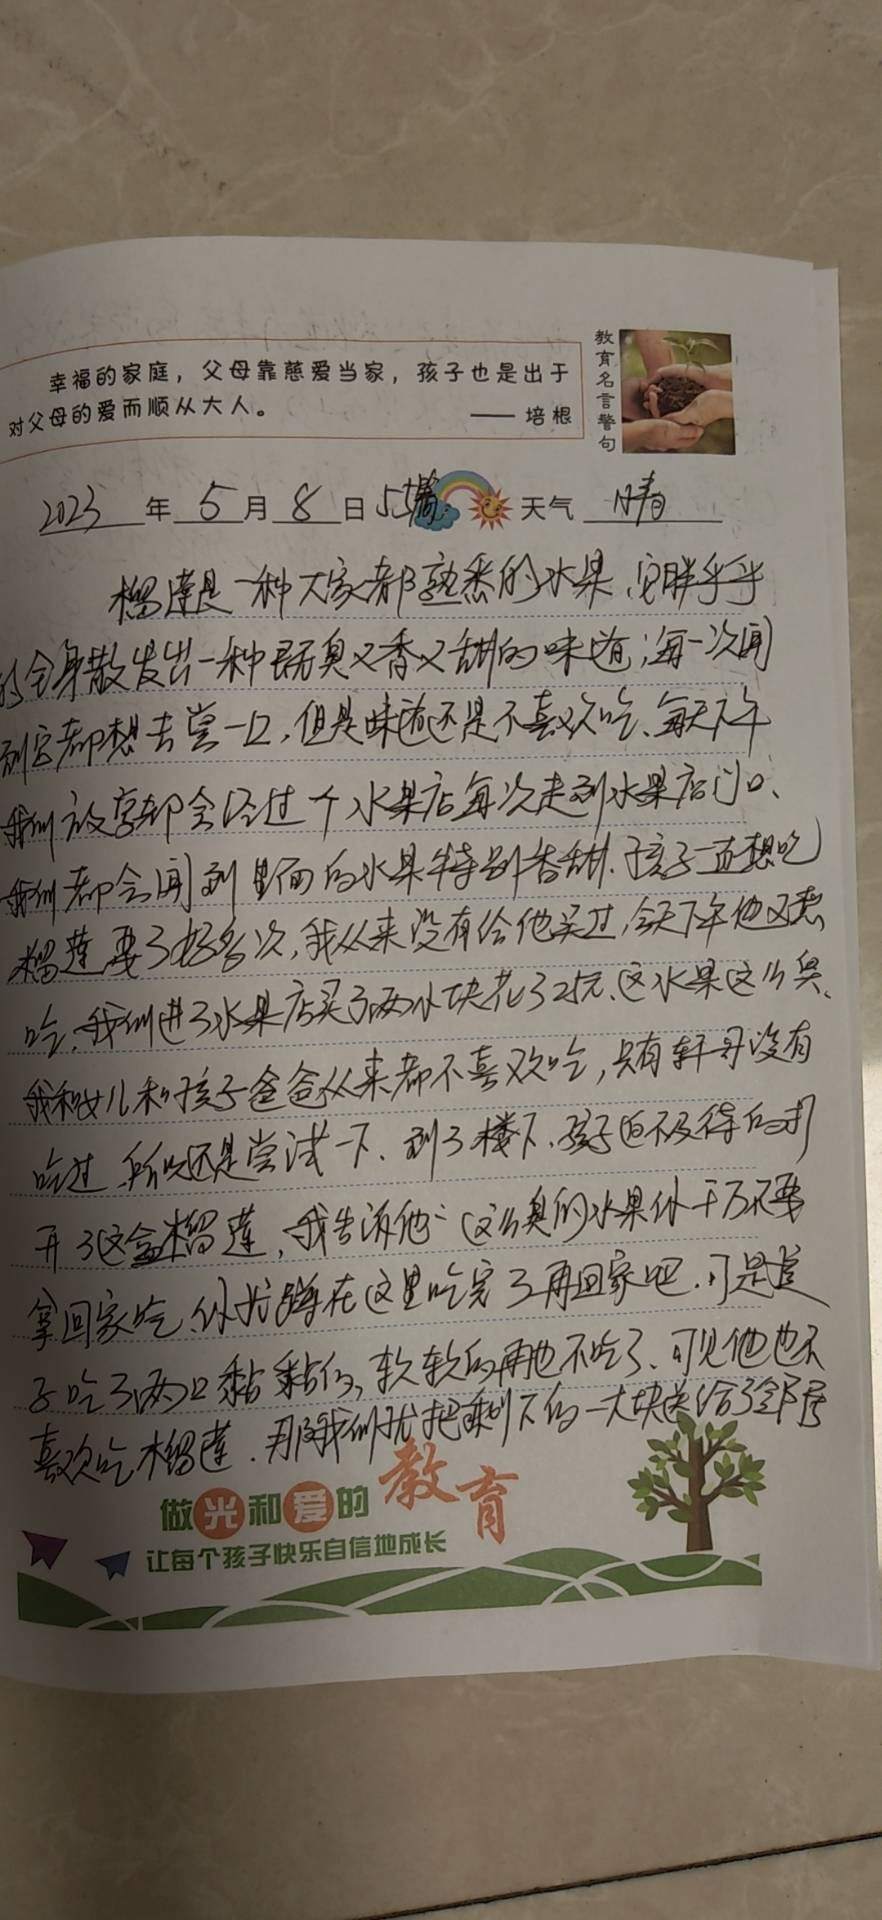 教育名言警句
幸福的家庭，父母靠慈爱当家，孩子也是出于
对父母的爱而顺从大人。 —— 培根
2023 年 5 月 8 日 55篇 天气 晴
榴莲是一种大家都熟悉的水果、它胖乎乎
的全身散发出一种既臭又香又甜的味道；每一次闻
到它都想去尝一口，但是味道还是不喜欢吃、每天下午
我们放学都会经过一个水果店每次走到水果店门口、
我们都会闻到里面的水果特别香甜．孩子一直想吃
榴莲要了好多次，我从来没有给他买过，今天下午他又想
吃，我们进了水果店买了两小块花了25元、这水果这么臭、
我和女儿和孩子爸爸从来都不喜欢吃，只有轩丹没有
吃过．所以还是尝试一下、到了楼下．孩子迫不及待的打
开了这盒榴莲，我告诉他：这么臭的水果你千万不要
拿回家吃、你就蹲在这里吃完了再回家吧．可是孩
子吃了两口黏黏的，软软的再也不吃了、可见他也不
喜欢吃榴莲．那我们就把剩下的一大块送给了邻居
做光和爱的教育
让每个孩子快乐自信地成长